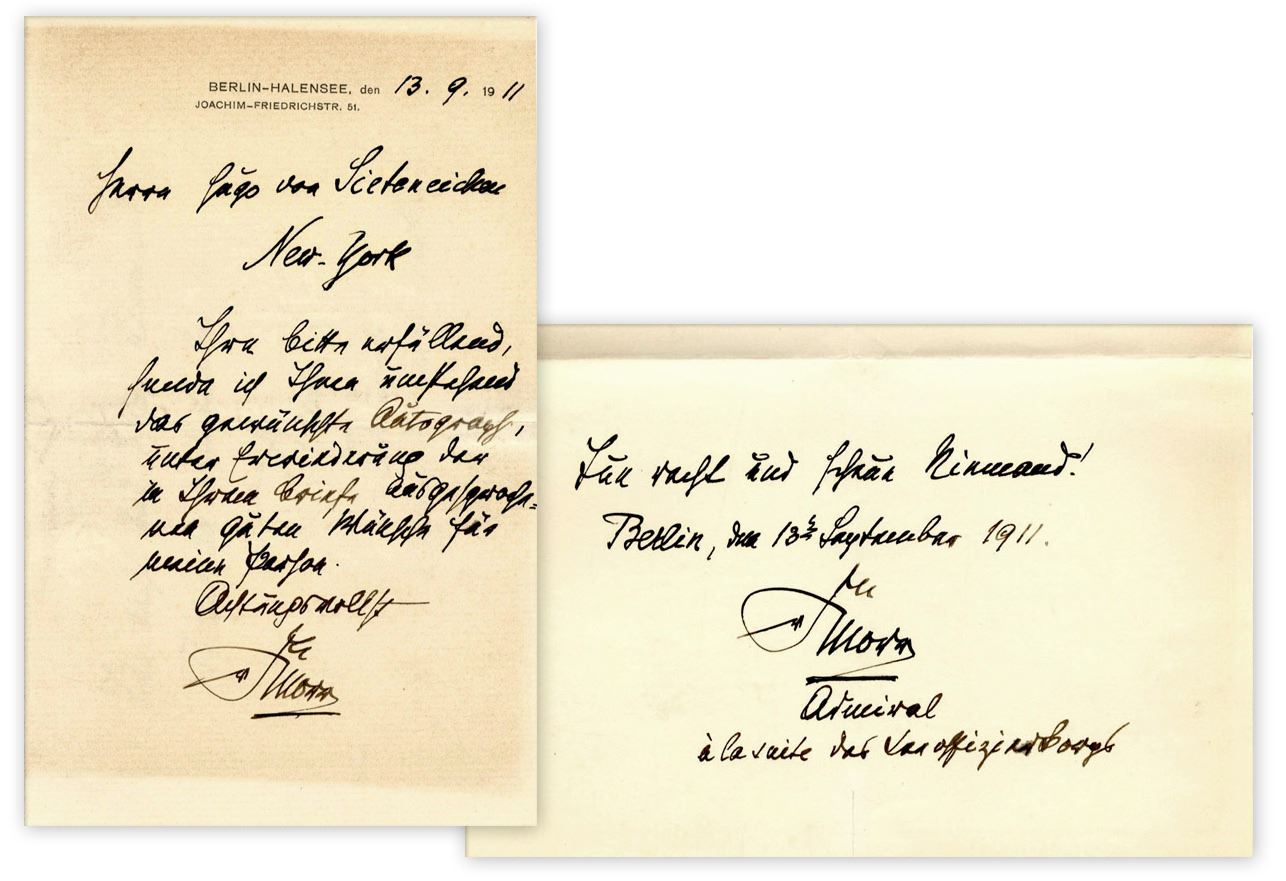 BERLIN-HALENSEE, den 13. 9. 19 11
JOACHIM-FRIEDRICHSTR. 51.
Herrn Hugo von
New-York
Ihre Bitte erfüllend,
sende ich Ihnen umstehend
das gewünschte Autograph,
unter Erwiederung der
in Ihrem Briefe ausgesproche=
nen guten Wünsche für
meine Person.
Achtungsvollst
Tue recht und scheue Niemand!
Berlin, den 13ten September 1911.
Admiral
à la suite des Seeoffizierkorps